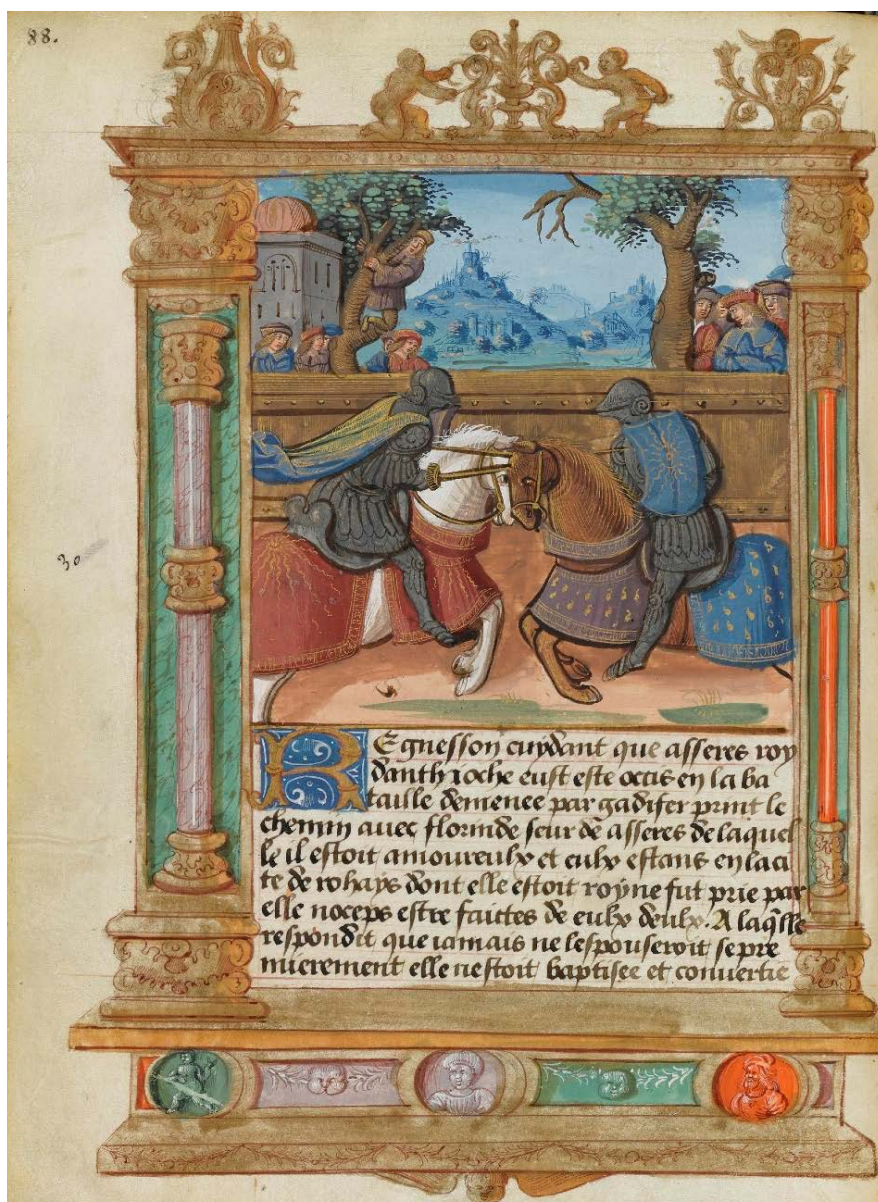 88.
30
Regnesson cuydant que asseres roy
danthioche eust este occis en la ba
taille demenee par gadifer print le
chemin auec florinde seur de asseres de laquel
le il estoit amoureulx et eulx estans en la ci
te de rohays dont elle estoit royne fut prie par
elle noceps estre faictes de eulx deulx. A laq̃lle
respondit que iamais ne lespouseroit se pre
mierement elle nestoit baptisee et conuertie